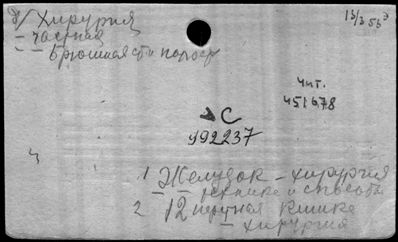 8/ Хирургия
13/3 55э
- частная
- - Брюшная ст и полость
Чит.
451678
С
992237
1 Желудок - хирургия
- - техника и способы
2 12 перстная кишка
- хирургия